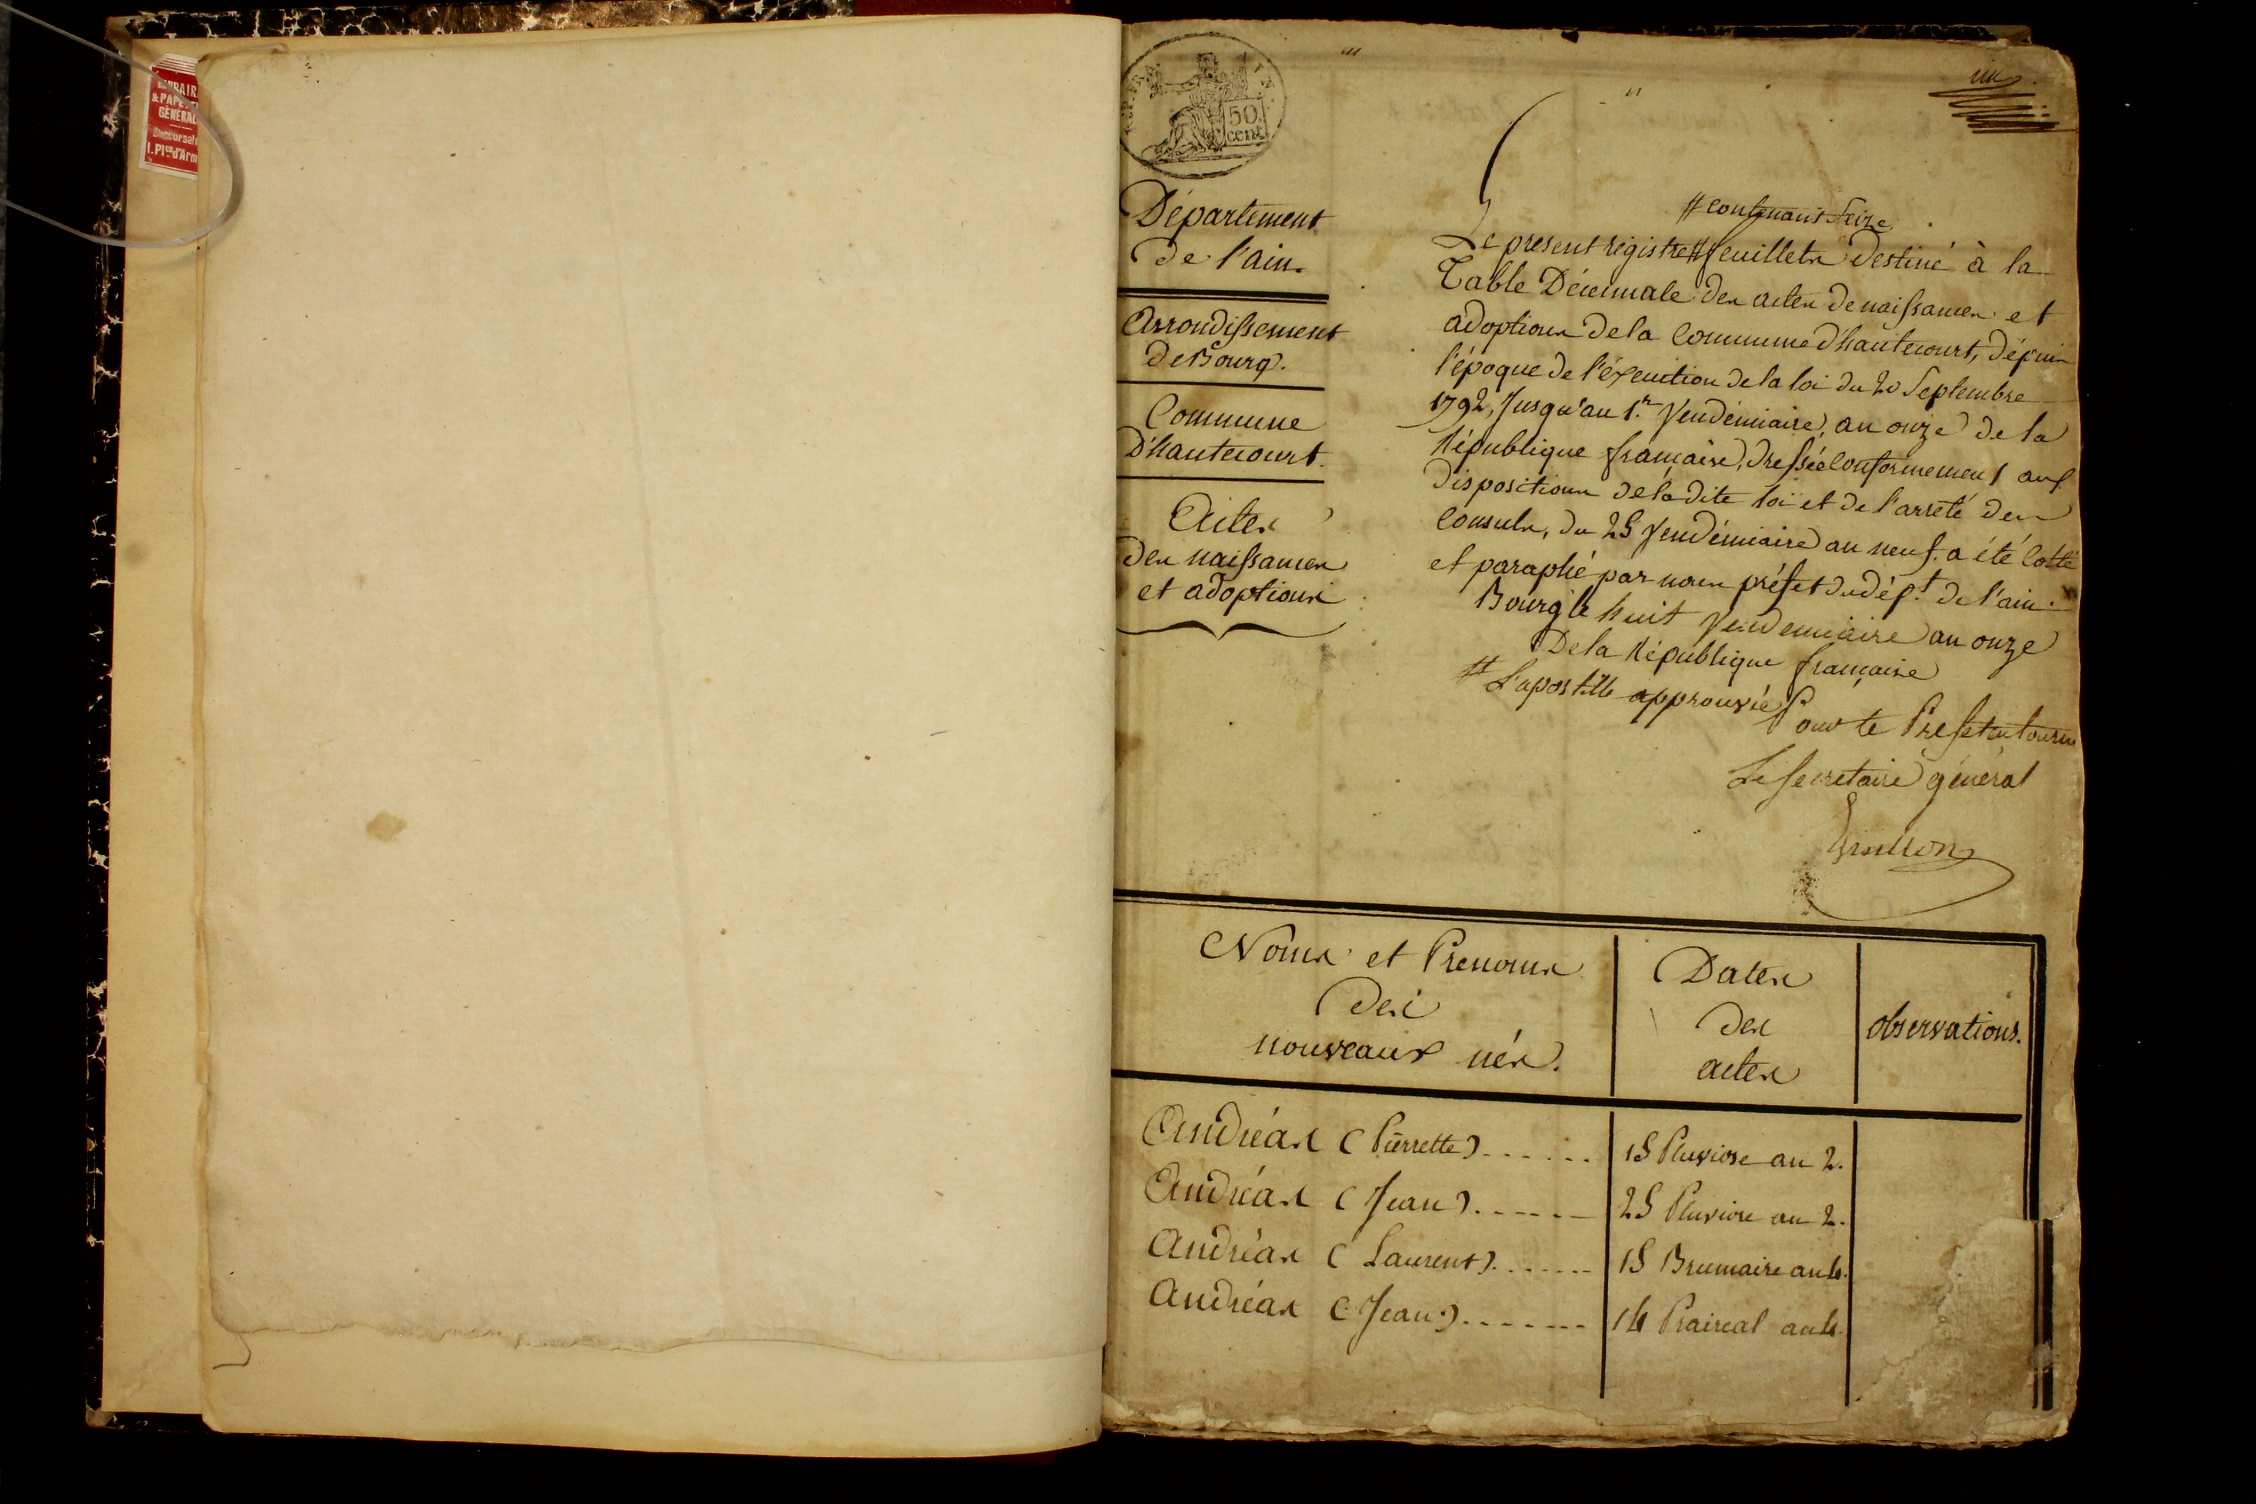 & PAP
GENERAL
Succursale
1. Pl. d'Arm
50
cent
Département
de l'ain.
Arrondissement
de Bourg.
Commune
D'hautecourt.
Actes
des naissances
et adoptions
# contenant seize
Le present régistre # feuillets destiné à la
Table Décennale des actes de naissances et
adoptions de la Commune d'hautecourt, dépuis
l'époque de l'éxecution de la loi du 20 Septembre
1792, Jusqu'au 1.er Vendémiaire, an onze de la
République française, dressée conformement aux
dispositions de la dite loi et de l'arreté des
Consuls, du 25 Vendémiaire an neuf. a été cotté
et paraphé par nous préfet du dép.t de l'ain.
Bourg le huit Vendemiaire an onze
De la République française
# L'apostille approuvée Pour le Préfet en tournée
Le secretaire général
Noms et Prenoms
des
nouveaux nés.
Dates
des
actes
observations.
Andréas (Pierrette)...... 15 Pluviose an 2.
Andréas (Jean)...... 25 Pluviose an 2.
Andréas (Laurent)....... 15 Brumaire an 4.
Andréas (Jean)....... 14 Prairéal an 4.